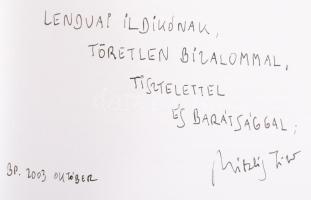 LENGYAI ILDIKÓNAK,
TÖRETLEN BIZALOMMAL,
TISZTELETTEL
ÉS BARÁTSÁGGAL;
BP. 2003 OKTÓBER